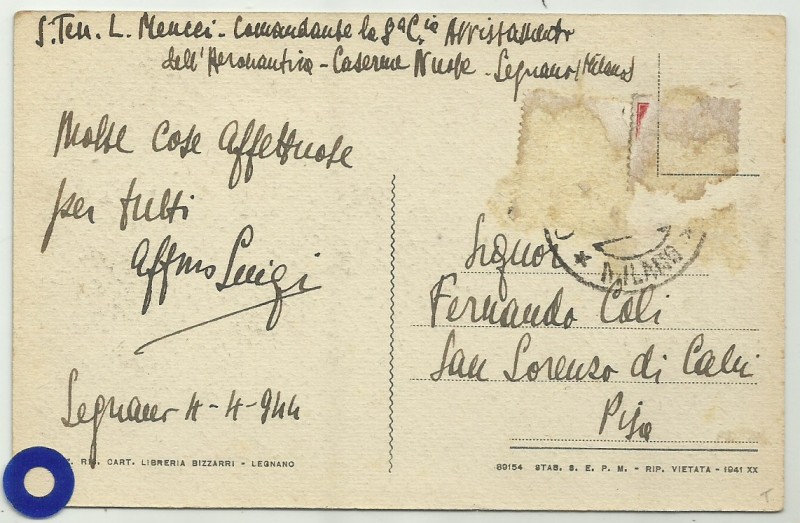 S.Ten. L. Mencci - Comandante la 8ª C.ia Avvistamento
dell'Aeronautica - Caserme Nuove - Legnano (Milano)
Molte cose affettuose
per tutti
Affmo Luigi
Legnano 4-4-944
RIS. CART. LIBRERIA BIZZARRI - LEGNANO
MILANO
Signor
Fernando Coli
San Lorenzo di Calci
Pisa
89154 STAB. S. E. P. M. - RIP. VIETATA - 1941 XX
T